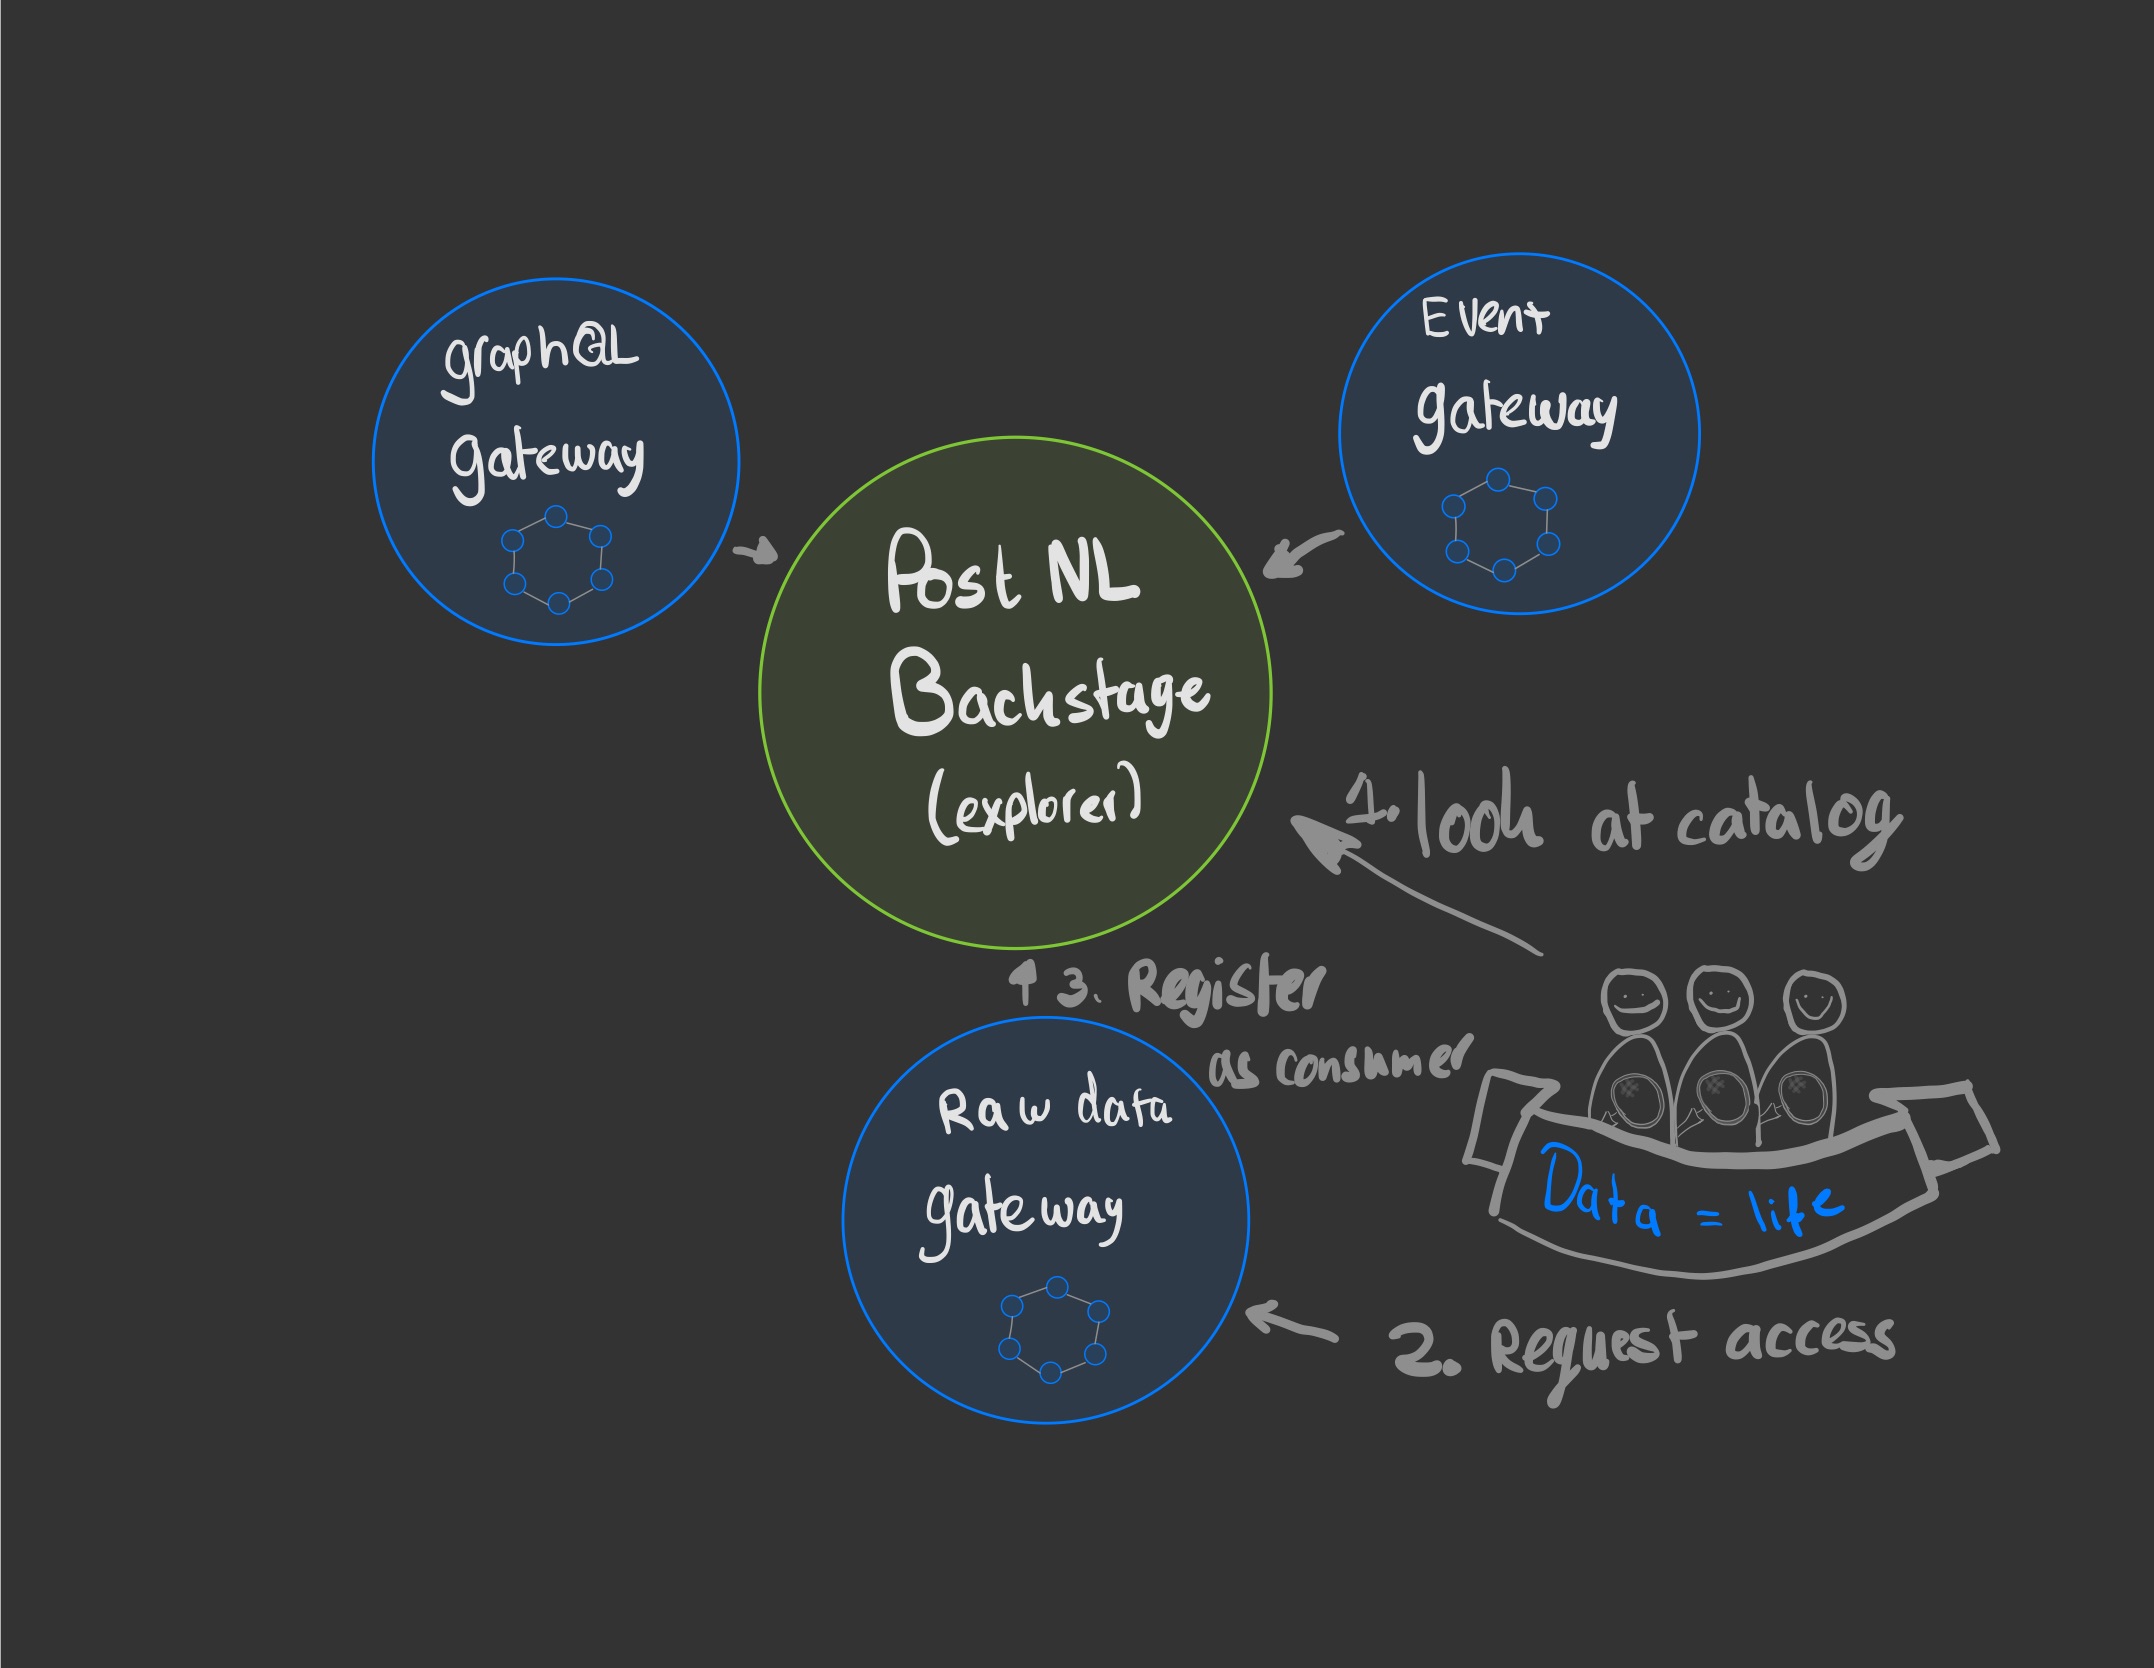 graphQL
gateway
Event
gateway
Post NL
Backstage
(explorer)
1. look at catalog
3. Register
as consumer
Raw data
gateway
Data = life
2. Request access